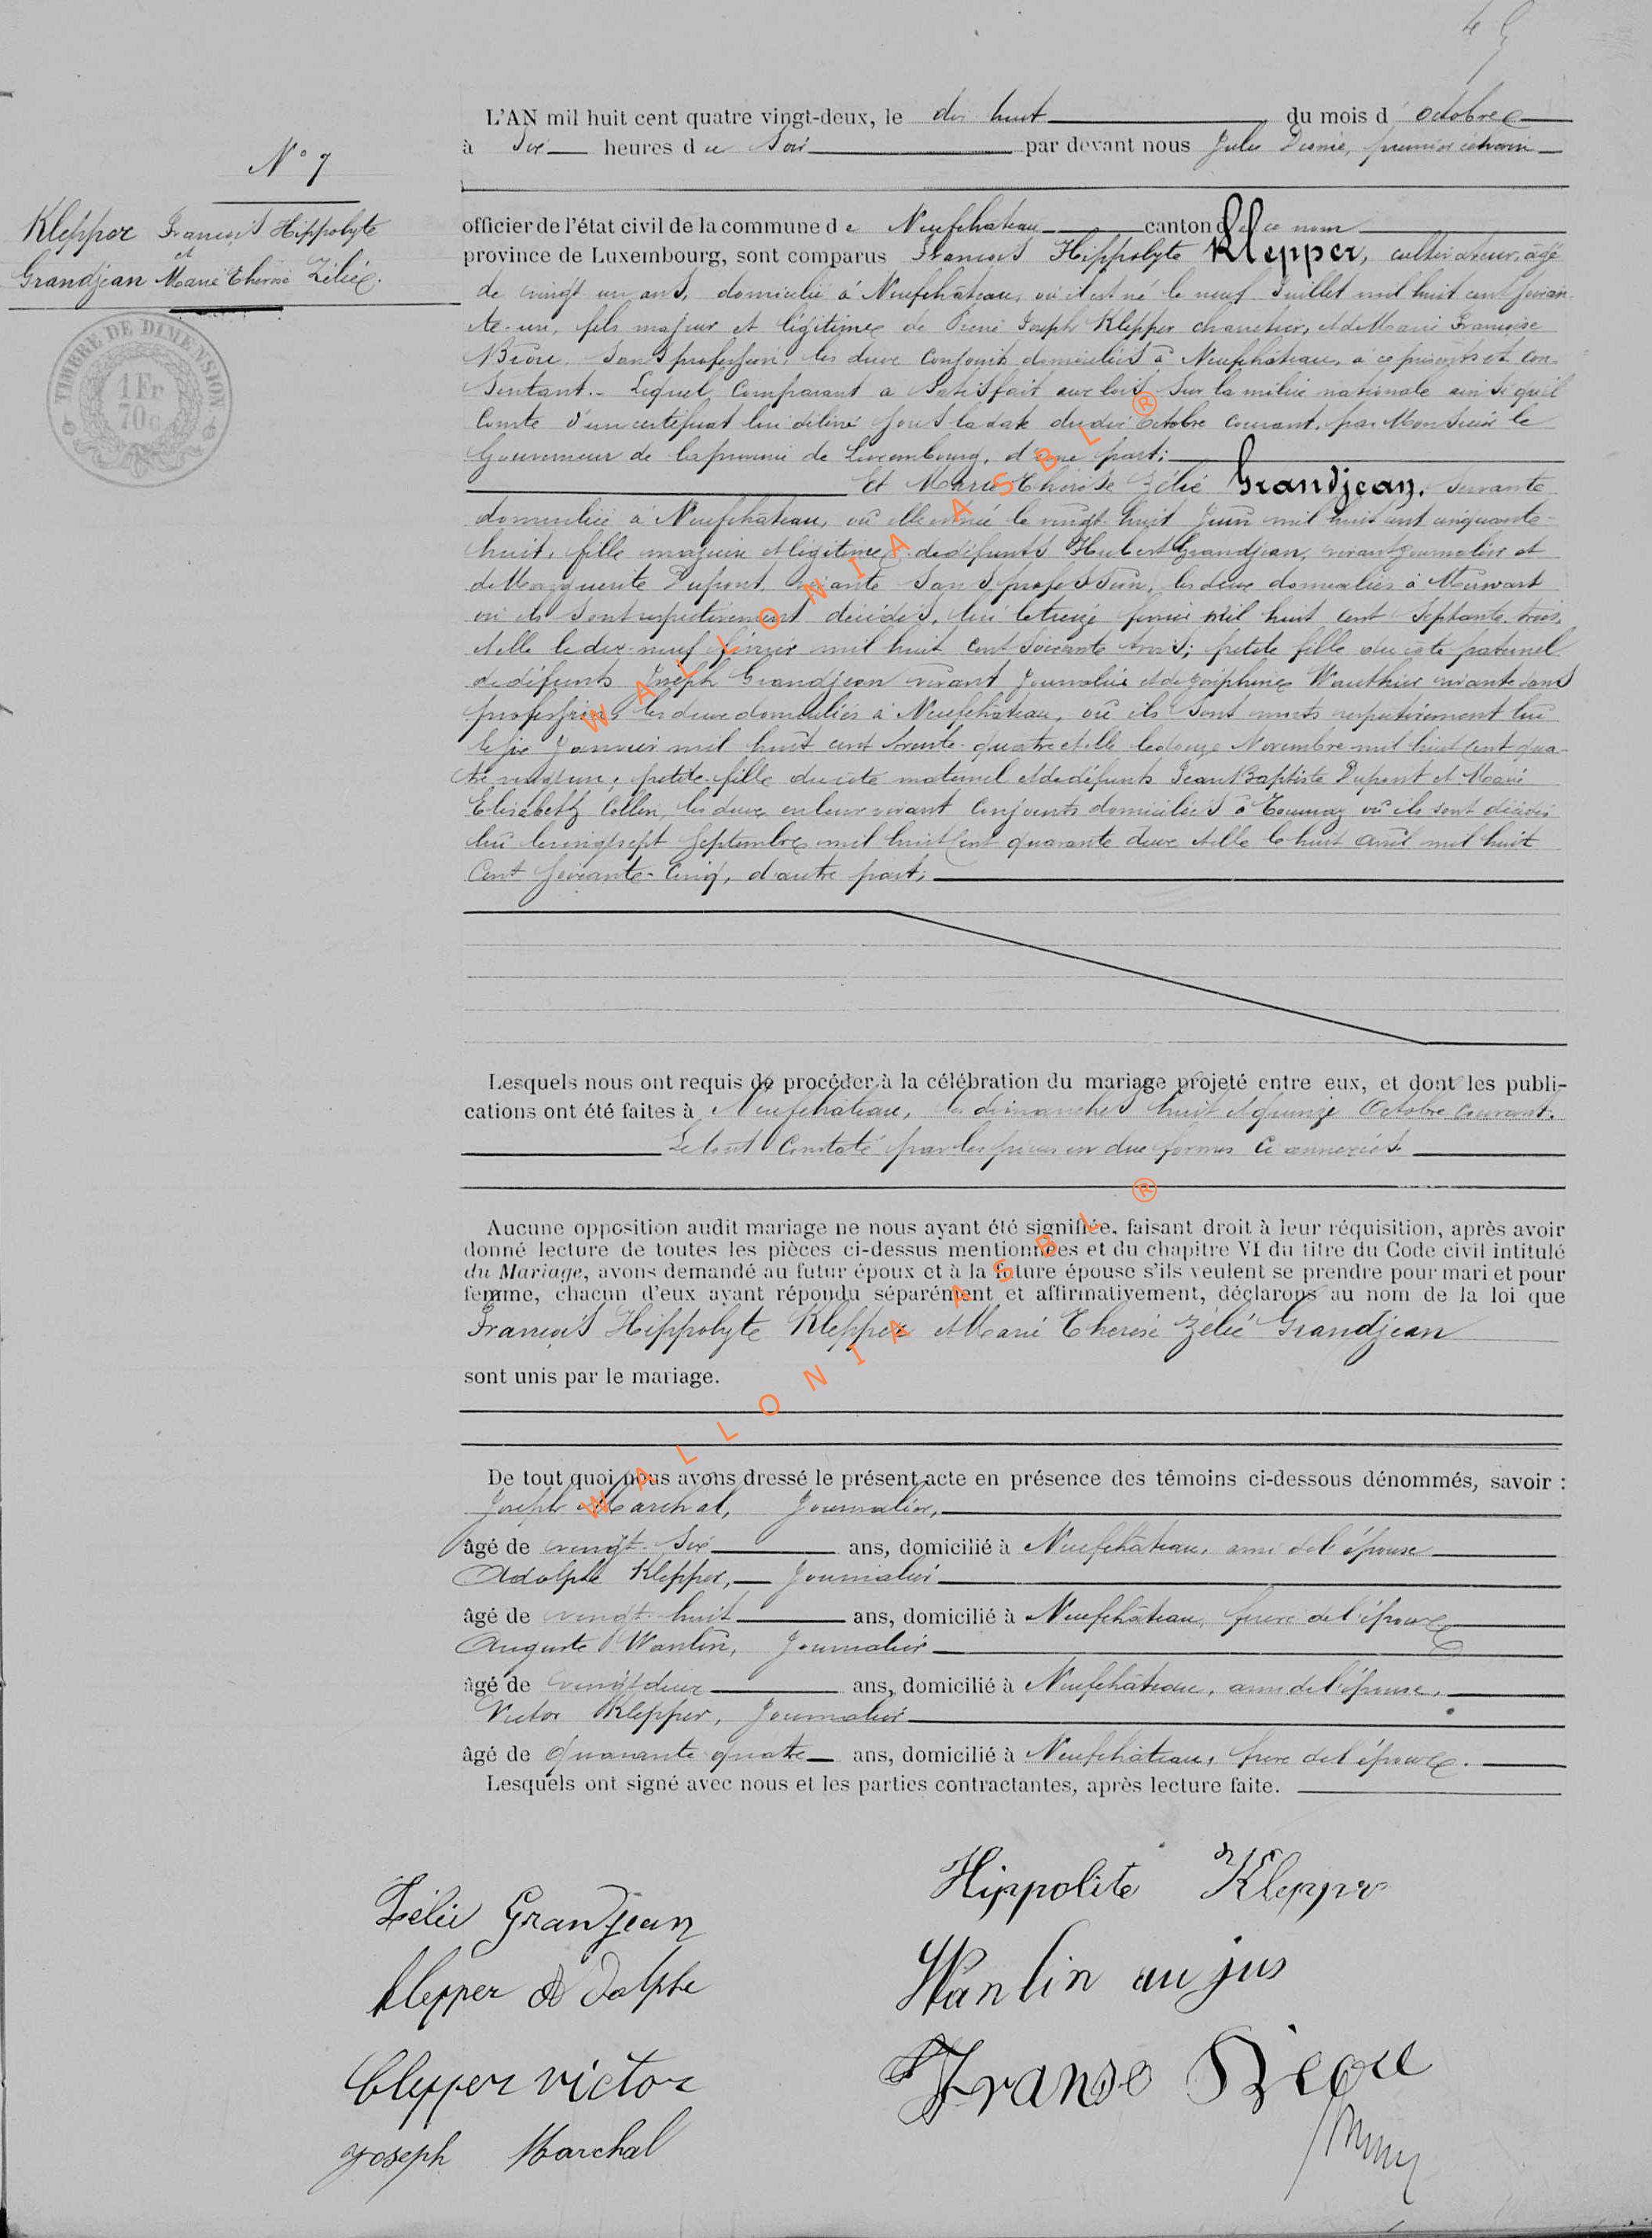 N° 7
Klepper François Hippolyte
et
Grandjean Marie Therèse Zéliée.
TIMBRE DE DIMENSION
1 Fr
70 c
L'AN mil huit cent quatre vingt-deux, le dix huit du mois d' octobre
à Six heures du Soir par devant nous Jules premier échevin
officier de l'état civil de la commune de Neufchateau canton de ce nom
province de Luxembourg, sont comparus François Hippolyte Klepper, cultivateur, âgé
de vingt un ans, domicilié à Neufchâteau, où il est né le neuf Juillet mil huit cent soixan
te-un, fils majeur et légitime de Joseph Klepper charretier, et de Marie Françoise
sans profession, les deux conjoints domiciliés à Neufchâteau, à ce présents et con-
sentant. - Lequel comparant a satisfait aux lois sur la milice nationale ainsi qu'il
conste d'un certificat lui délivré sous la date du dix octobre courant, par Monsieur le
Gouverneur de la province de Luxembourg, d'une part;
Et Marie Thérèse Zélié Grandjean, servante
domiciliée à Neufchâteau, où elle est née le vingt-huit Juin mil huit cent cinquante-
huit, fille majeure et légitime de défunts Hubert Grandjean, vivant journalier et
de Marguerite Dupont, vivante sans profession, les deux domiciliés à
où ils sont respectivement décédés, lui le treize mil huit cent septante-trois,
et elle le dix-neuf février mil huit cent soixante trois; petite fille du côté paternel
de défunts Joseph Grandjean vivant journalier et de Joséphine Wauthier vivante sans
profession, les deux domiciliés à Neufchâteau, où ils sont morts respectivement lui
le six Janvier mil huit cent trente-quatre et elle le douze Novembre mil huit cent qua-
tre vingt un; petite-fille du côté maternel et de défunts Jean Baptiste Dupont et Marie
Elisabeth Collin, les deux en leur vivant conjoints domiciliés à Tournay où ils sont décédés
lui le vingt sept Septembre mil huit cent quarante deux et elle le huit avril mil huit
cent soixante-cinq, d'autre part;
Lesquels nous ont requis de procéder à la célébration du mariage projeté entre eux, et dont les publi-
cations ont été faites à Neufchâteau, les dimanches huit et quinze Octobre courant.
Le tout constaté par les pièces en due formes ci annexées.
Aucune opposition audit mariage ne nous ayant été signifiée, faisant droit à leur réquisition, après avoir
donné lecture de toutes les pièces ci-dessus mentionnées et du chapitre VI du titre du Code civil intitulé
du Mariage, avons demandé au futur époux et à la future épouse s'ils veulent se prendre pour mari et pour
femme, chacun d'eux ayant répondu séparément et affirmativement, déclarons au nom de la loi que
François Hippolyte Klepper et Marie Therèse Zélié Grandjean
sont unis par le mariage.
De tout quoi nous avons dressé le présent acte en présence des témoins ci-dessous dénommés, savoir :
Joseph Marchal, Journalier,
âgé de vingt-six ans, domicilié à Neufchâteau, ami de l'épouse
Adolphe Klepper, Journalier
âgé de vingt-huit ans, domicilié à Neufchâteau, frère de l'époux
Auguste Wanlin, Journalier
âgé de vingt deux ans, domicilié à Neufchâteau, ami de l'épouse,
Victor Klepper, Journalier
âgé de quarante quatre ans, domicilié à Neufchâteau, frère de l'époux.
Lesquels ont signé avec nous et les parties contractantes, après lecture faite.
Zélie Grandjean
Hippolite Klepper
klepper Adolphe
Wanlin aujus
Clepper victor
Franso
Joseph Marchal
WALLONIA ASBL ®
WALLONIA ASBL ®